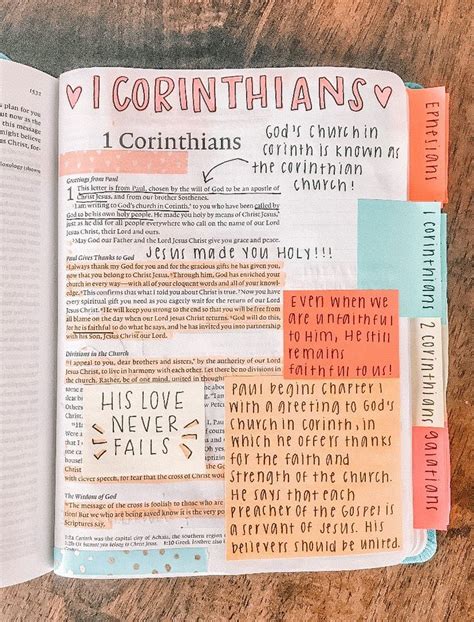 ♥ 1 CORINTHIANS ♥
1 Corinthians
God's church in
corinth is known as
the corinthian
church!
Greetings from Paul
1 This letter is from Paul, chosen by the will of God to be an apostle of
Christ Jesus, and from our brother Sosthenes.
I am writing to God's church in Corinth, to you who have been called by
God to be his own holy people. He made you holy by means of Christ Jesus,
just as he did for all people everywhere who call on the name of our Lord
Jesus Christ, their Lord and ours.
May God our Father and the Lord Jesus Christ give you grace and peace.
Jesus made you holy!!!
Paul Gives Thanks to God
I always thank my God for you and for the gracious gifts he has given you,
now that you belong to Christ Jesus. Through him, God has enriched your
church in every way—with all of your eloquent words and all of your knowl-
edge. This confirms that what I told you about Christ is true. Now you have
every spiritual gift you need as you eagerly wait for the return of our Lord
Jesus Christ. He will keep you strong to the end so that you will be free from
all blame on the day when our Lord Jesus Christ returns. God will do this, for
he is faithful to do what he says, and he has invited you into partnership
with his Son, Jesus Christ our Lord.
Even when we
are unfaithful
to Him, He still
remains
faithful to us!
Divisions in the Church
I appeal to you, dear brothers and sisters, by the authority of our Lord
Jesus Christ, to live in harmony with each other. Let there be no divisions in
the church. Rather, be of one mind, united in
HIS LOVE
NEVER
FAILS
Paul begins chapter 1
with a greeting to God's
church in Corinth, in
which he offers thanks
for the faith and
strength of the church.
He says that each
preacher of the Gospel is
a servant of Jesus. His
believers should be united.
with clever speech, for fear that the cross of Christ would
The Wisdom of God
The message of the cross is foolish to those who are
tion! But we who are being saved know it is the very
Scriptures say,
1:2a Corinth was the capital city of Achaia, the southern region
1:10 Greek
Ephesians
1 corinthians
2 corinthians
galatians
1531
plan for you
out now as the
this message
might believe
Christ, for-